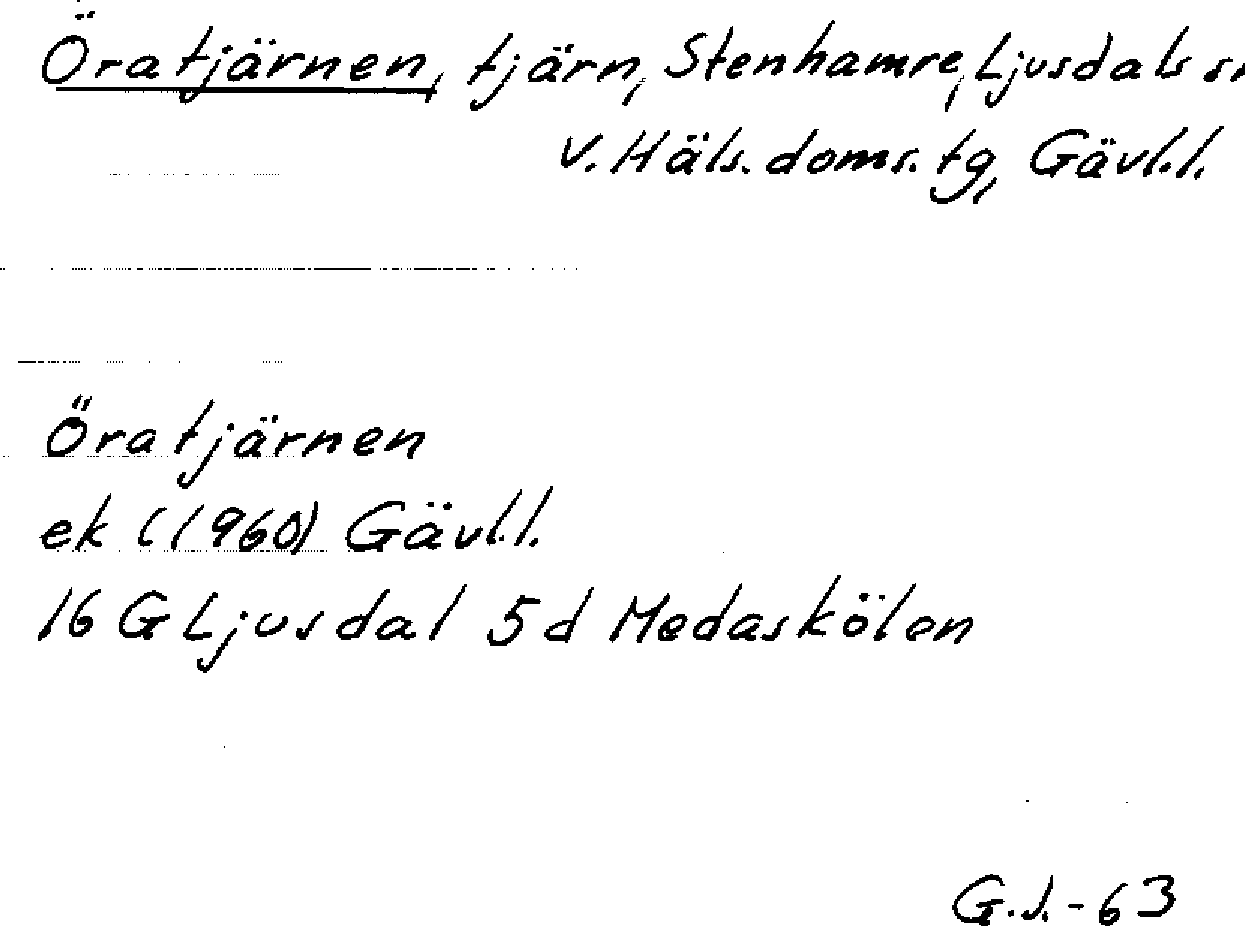 Öratjärnen, tjärn, Stenhamre, Ljusdals sn
V. Häls. doms. tg, Gävl.l.
Öratjärnen
ek (1960) Gävl.l.
16 G Ljusdal 5d Medaskölen
G.J.-63